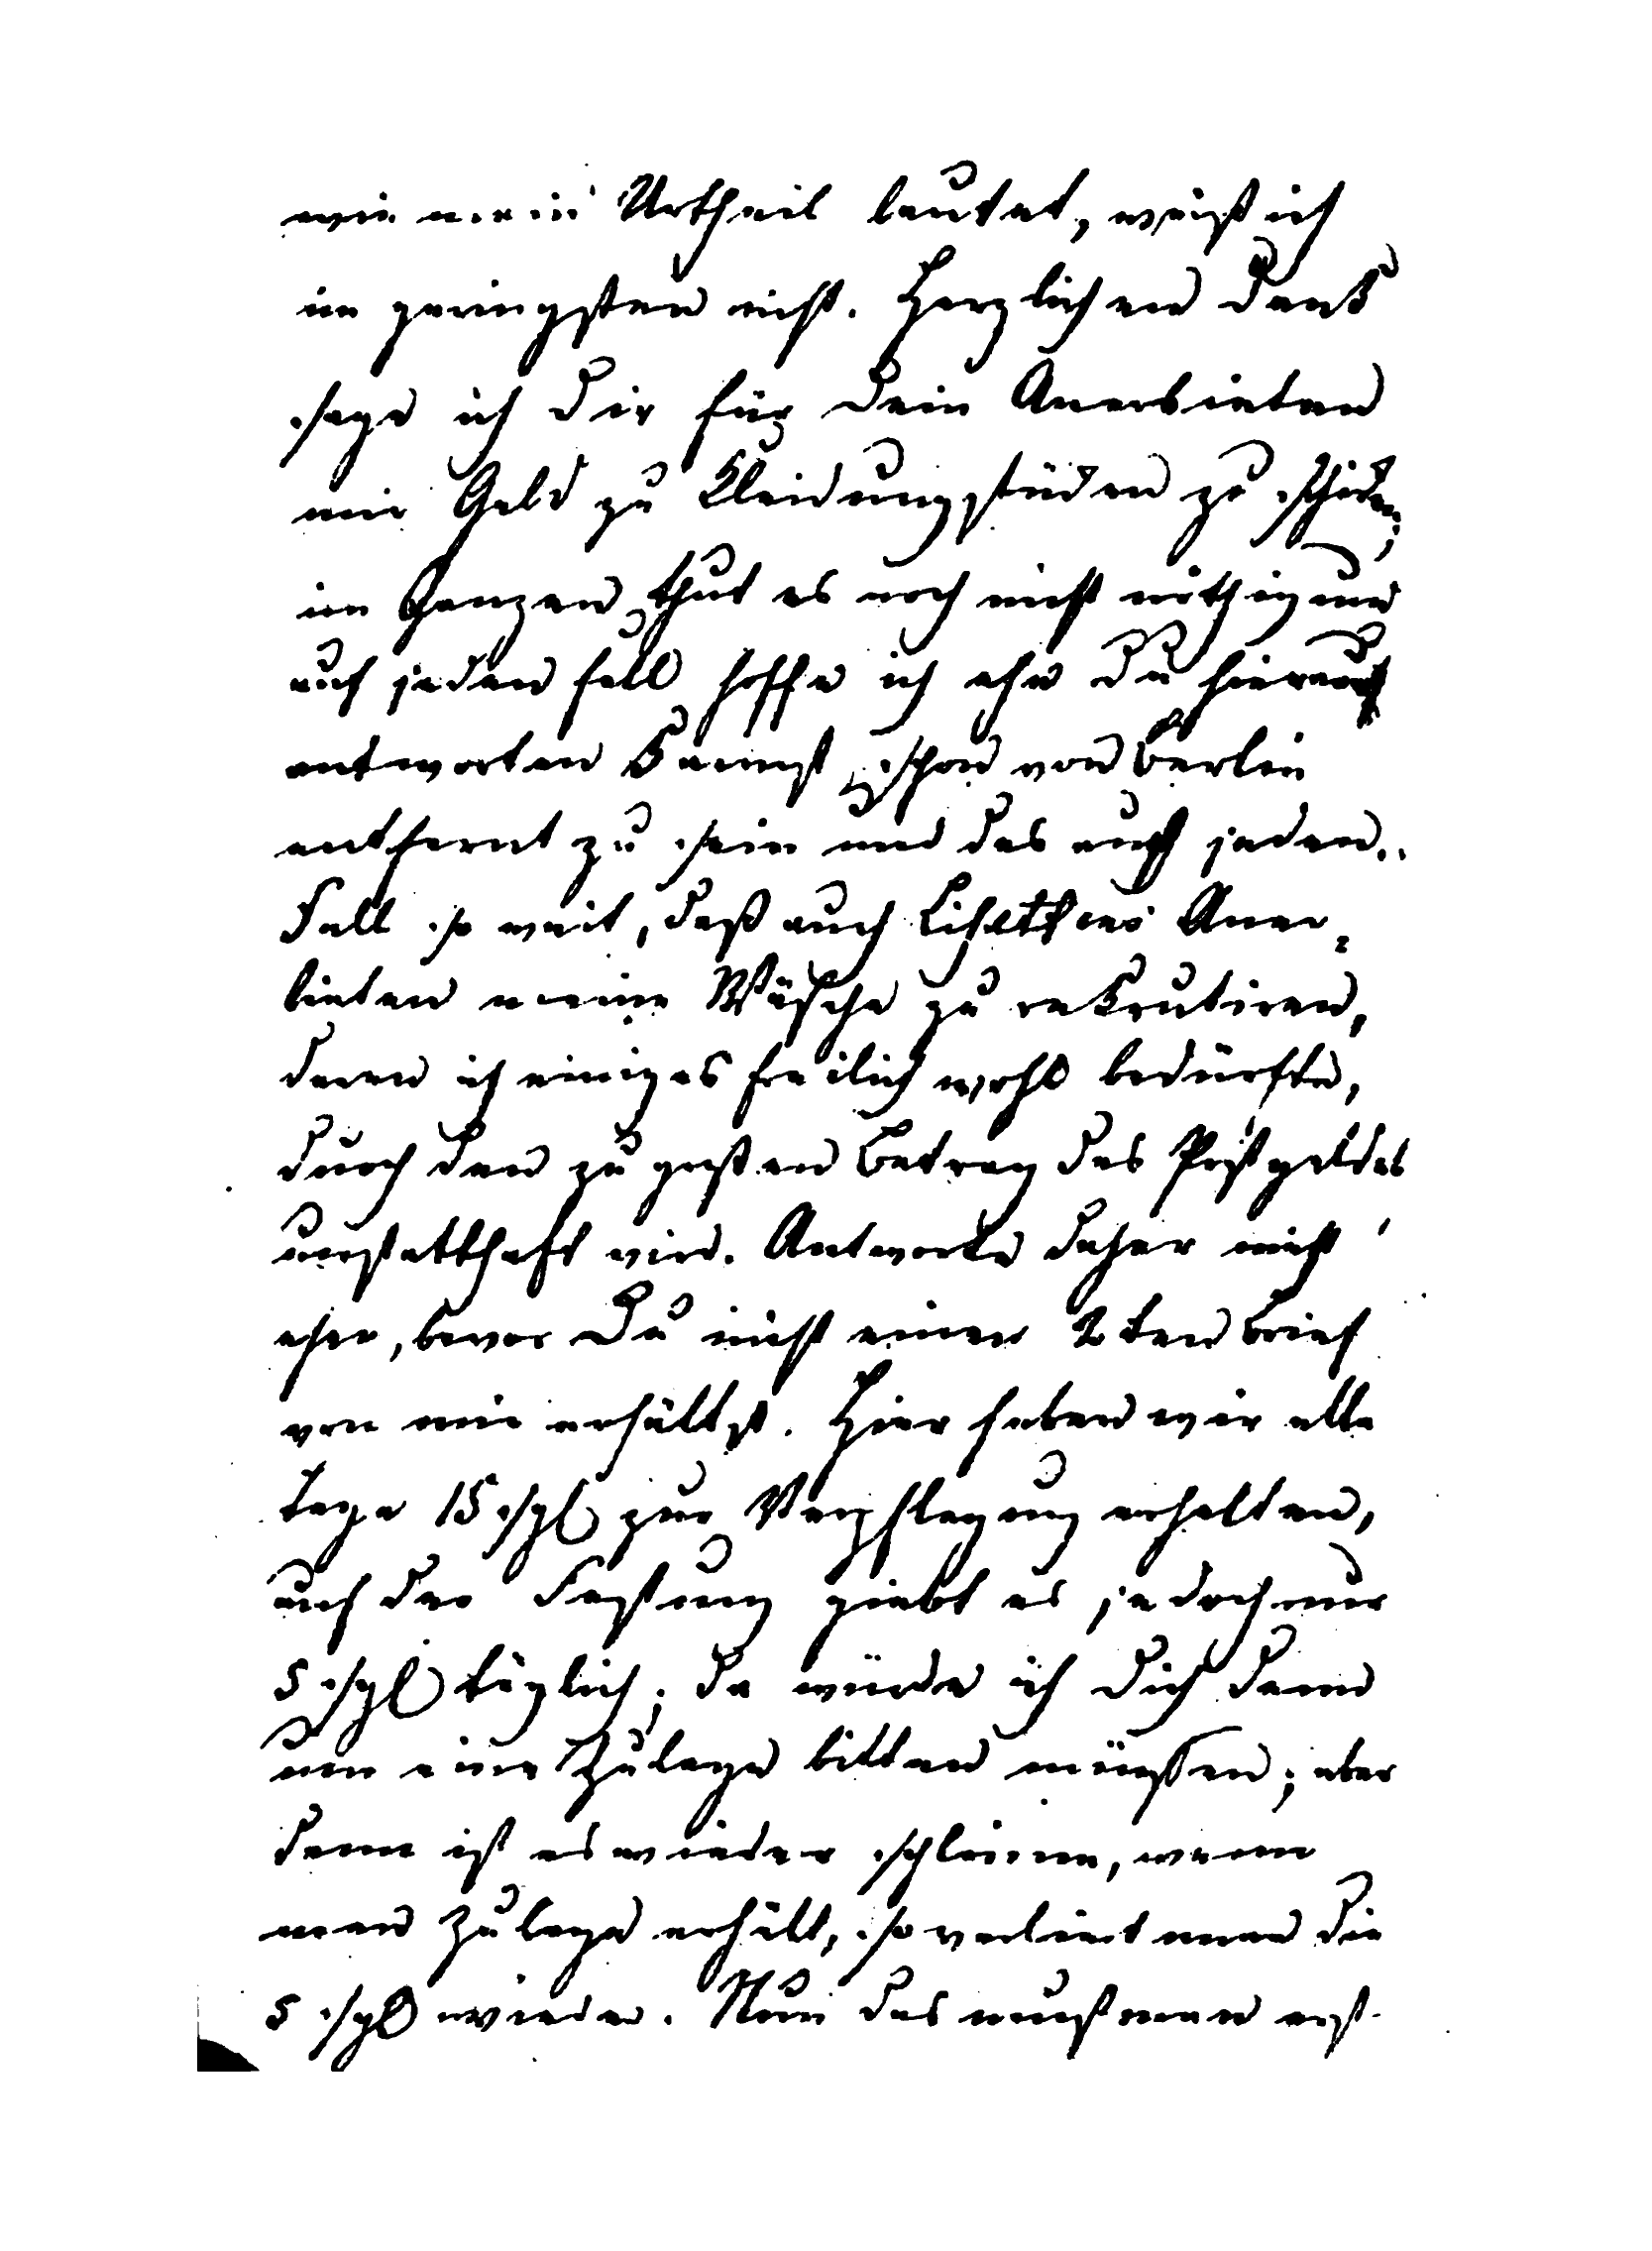 wie mein Urtheil lautet, weiß ich
im geringsten nicht. Herzlichen Dank
sage ich Dir für Dein Anerbieten
mir Geld zu Kleidungsstücken zu schicken;
im Ganzen thut es noch nicht nöthig und
auf jeden Fall hoffe ich ehe Du hierauf
antworten kannst schon von Berlin
entfernt zu sein und das auf jeden
Fall so weit, daß auch Aner-
bieten meine Wäsche zu rekrutiren,
deren ich einiges freilich wohl bedürfte,
durch den zu großen Betrag des Postgeldes
unstatthaft wird. Antworte daher nicht
eher, bevor Du nicht einen 2ten Brief
von mir erhältst. Hier haben wir alle
Tage 15 sgl zur Verpflegung erhalten,
auf der Festung giebt es jedoch nur
5 sgl täglich; da würde ich Dich denn
um eine Zulage bitten müssen; aber
dann ist es wieder schlimm, wenn
man Zulage erhält, so verliert man die
5 sgl wieder. Nun das muß man erst